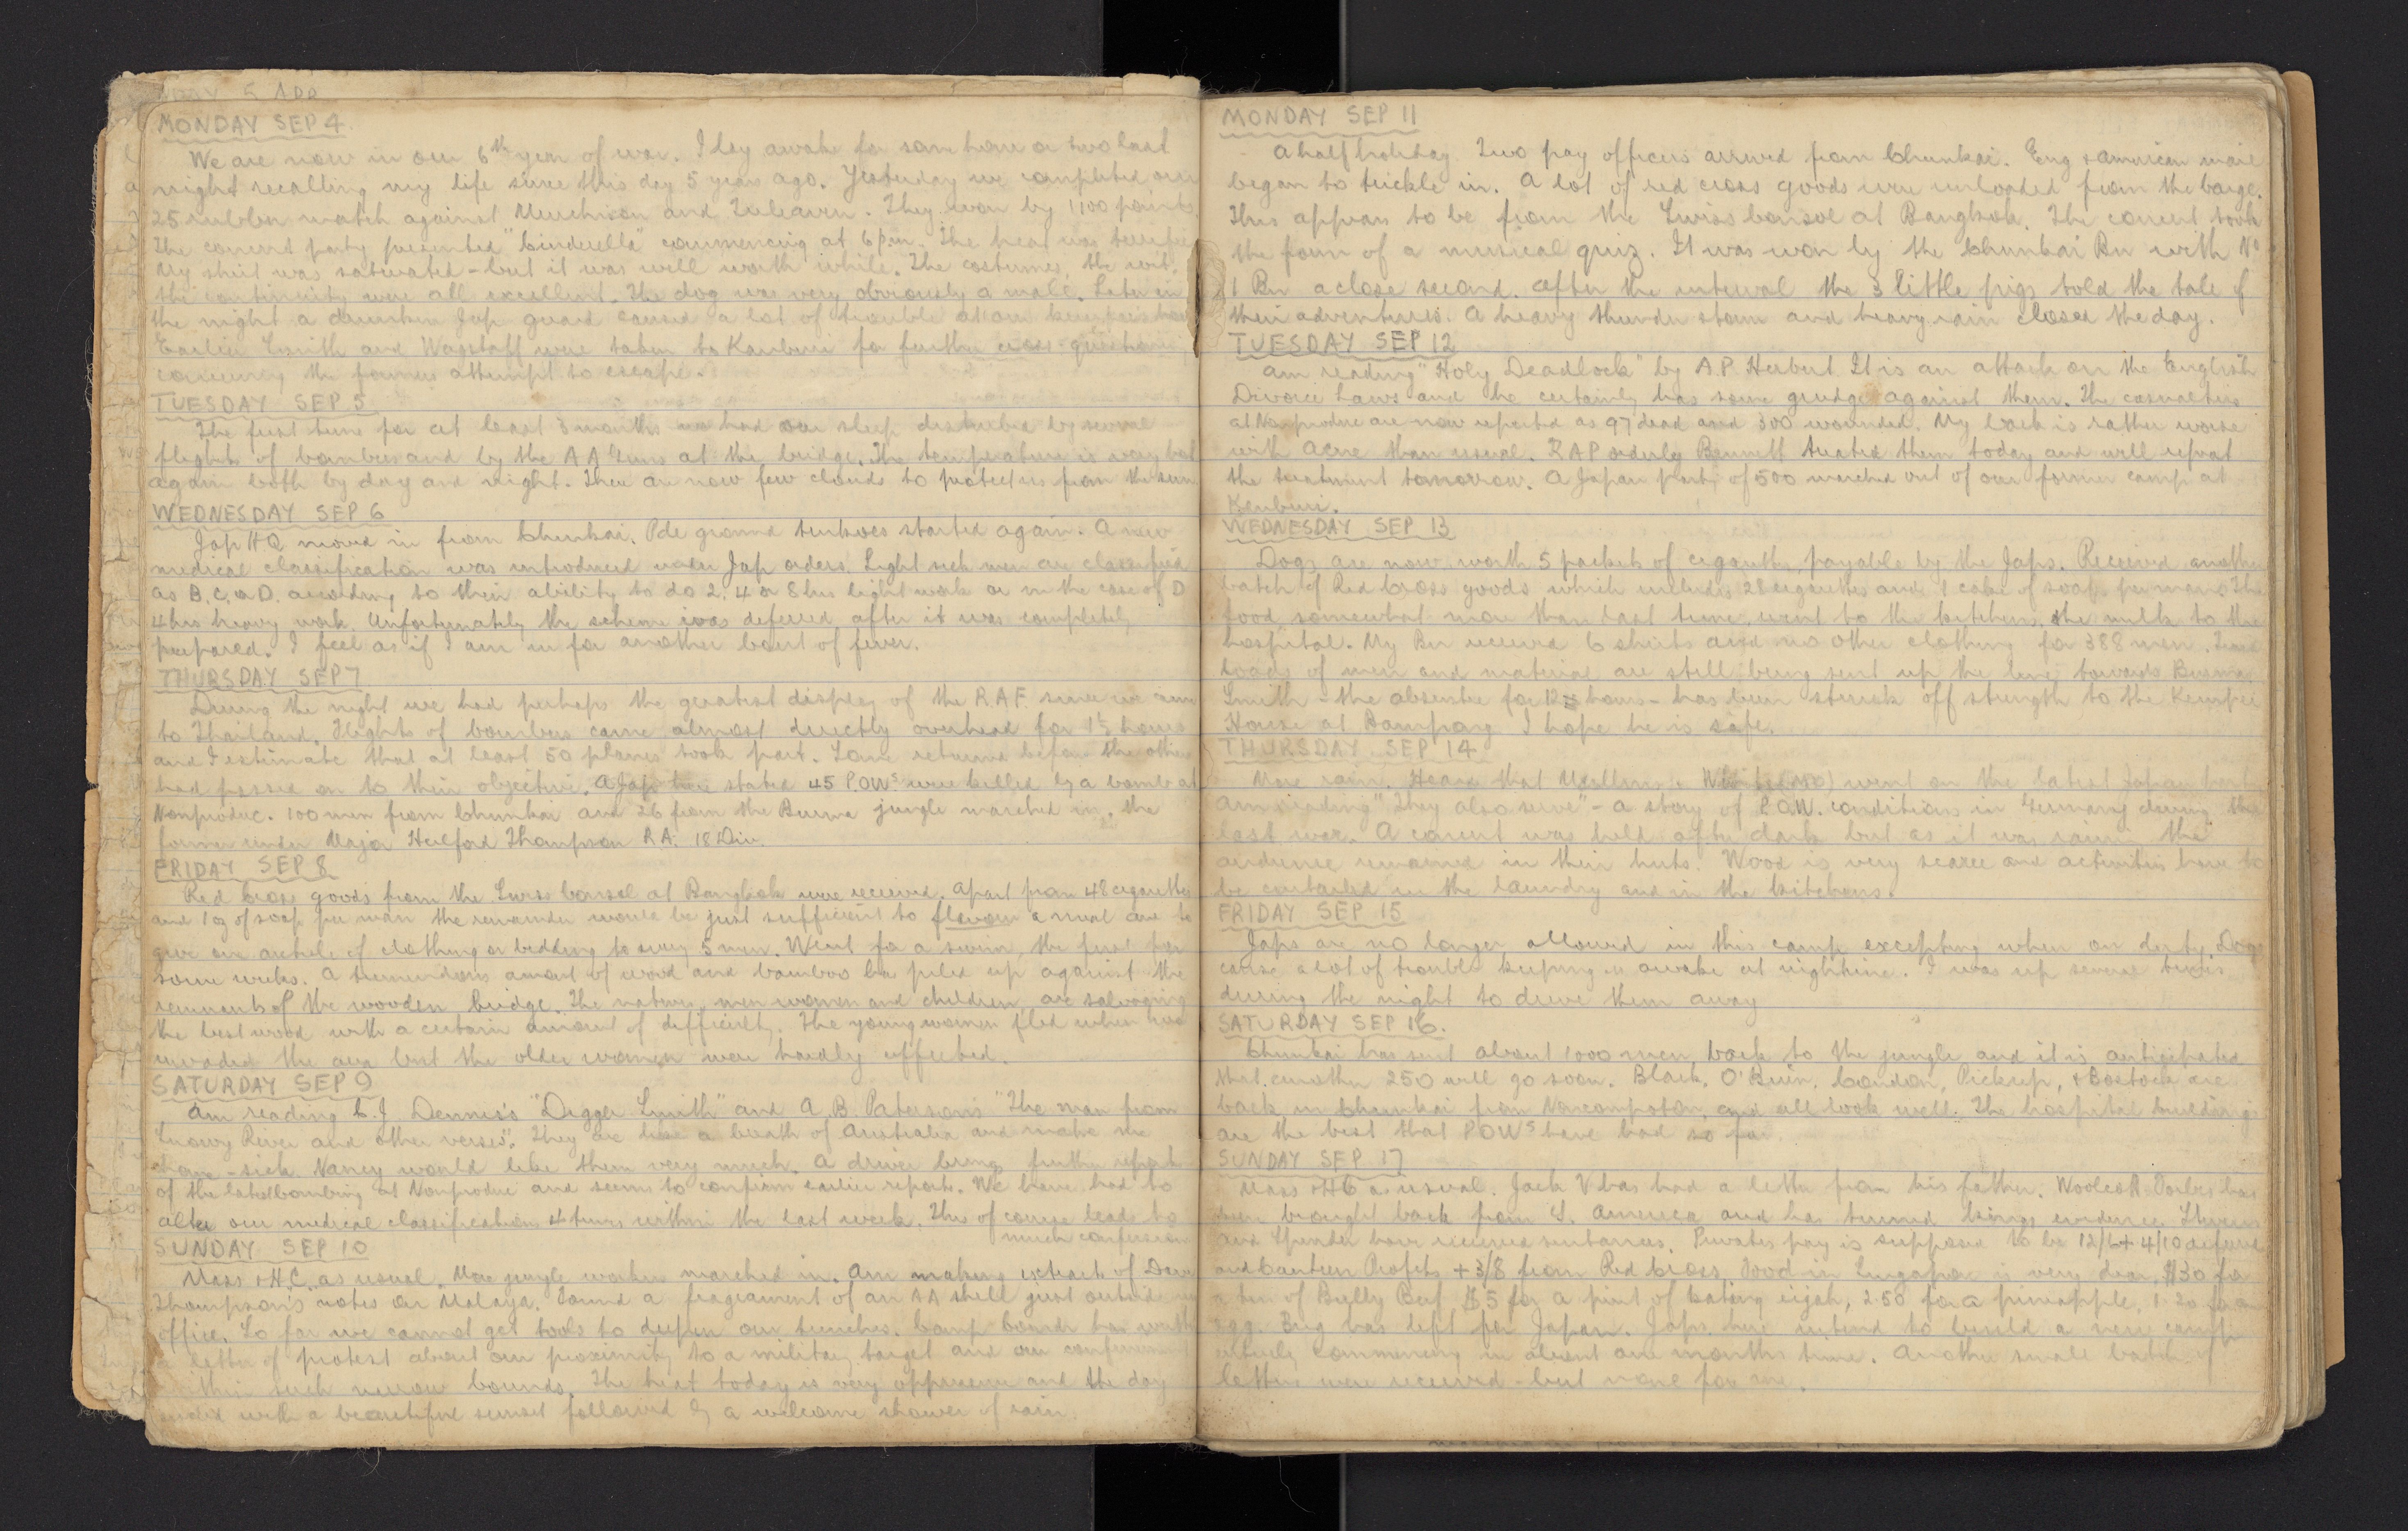 MONDAY SEP 4.
We are now in our 6th year of war. I lay awake for some hour or two last
night recalling my life since this day 5 years ago. Yesterday we completed our
25 rubber match against Murchison and Treleaven. They won by 1100 points.
The concert party presented "Cinderella" commencing at 6 p.m. The heat was terrific
My shirt was saturated - but it was well worth while. The costumes, the wit,
the continuity were all excellent. The dog was very obviously a male. Later in
the night a drunken Jap guard caused a lot of trouble at our
Earlier Smith and Wagstaff were taken to Kanburi for further cross-question
concerning the former's attempt to escape.
TUESDAY SEP 5
The first time for at least 3 months we had our sleep disturbed by several
flights of bombers and by the AA Guns at the bridge. The temperature is very hot
again both by day and night. There are now few clouds to protect us from the sun
WEDNESDAY SEP 6
Jap HQ moved in from Chunkai. Pde ground tenkoes started again. A new
medical classification was introduced under Jap orders. Light sick men are classified
as B, C, or D. according to their ability to do 2, 4 or 8 hrs light work or in the case of D
4 hrs heavy work. Unfortunately the scheme was deferred after it was completely
prepared. I feel as if I am in for another bout of fever.
THURSDAY SEP 7
During the night we had perhaps the greatest display of the R.A.F. since we came
to Thailand. Flights of bombers came almost directly overhead for 1½ hours
and I estimate that at least 50 planes took part. Some returned before the others
had passed on to their objective. A Jap here stated 45 P.O.Ws were killed by a bomb at
Nonproduc. 100 men from Chunkai and 26 from the Burma jungle marched in, the
former under Major Hulford Thompson R.A. 18 Div.
FRIDAY SEP 8
Red Cross goods from the Swiss Consul at Bangkok were received. Apart from 48 cigarettes
and 1 oz of soap per man the remainder would be just sufficient to flavour a meal and to
give one article of clothing or bedding to every 5 men. Went for a swim, the first for
some weeks. A tremendous amount of wood and bamboo has piled up against the
remnants of the wooden bridge. The natives, men women and children, are salvaging
the best wood with a certain amount of difficulty. The young women fled when we
invaded the area but the older women were hardly affected.
SATURDAY SEP 9
Am reading C.J. Dennis's "Digger Smith" and A.B. Paterson's "The man from
Snowy River and other verses". They are like a breath of Australia and make me
home-sick. Nancy would like them very much. A driver brings further reports
of the latest bombing at Nonproduc and seems to confirm earlier reports. We have had to
alter our medical classifications 4 times within the last week. This of course leads to
much confusion
SUNDAY SEP 10
Mass & H.C. as usual. More jungle workers marched in. Am making extracts of Dave
Thompson's notes on Malaya. Found a fragment of an AA shell just outside my
office. So far we cannot get tools to deepen our trenches. Camp Comdr has written
a letter of protest about our proximity to a military target and our confinement
within such narrow bounds. The heat today is very oppressive and the day
ended with a beautiful sunset followed by a welcome shower of rain.
MONDAY SEP 11
A half holiday. Two pay officers arrived from Chunkai. Eng & American mail
began to trickle in. A lot of red cross goods were unloaded from the barge.
This appears to be from the Swiss Consul at Bangkok. The concert took
the form of a musical quiz. It was won by the Chunkai Bn with No
1 Bn a close second. After the interval the 3 little pigs told the tale of
their adventures. A heavy thunder storm and heavy rain closed the day.
TUESDAY SEP 12
Am reading "Holy Deadlock" by A.P. Herbert. It is an attack on the English
Divorce Laws and he certainly has some grudge against them. The casualties
at Nonproduc are now reported as 97 dead and 300 wounded. My back is rather worse
with acne than usual. RAP orderly Bennett treated them today and will repeat
the treatment tomorrow. A Japan party of 500 marched out of our former camp at
Kanburi.
WEDNESDAY SEP 13
Dogs are now worth 5 packets of cigarettes payable by the Japs. Received another
batch of Red Cross goods which includes 28 cigarettes and 1 cake of soap per man. The
food, somewhat more than last time, went to the kitchens, the milk to the
hospital. My Bn received 6 shirts and no other clothing for 388 men.
loads of men and material are still being sent up the line towards Burma.
Smith - the absentee for 12 hours - has been struck off strength to the Kempei
House at Bampong. I hope he is safe.
THURSDAY SEP 14
More rain. Heard that went on the latest Japan party
Am reading "They also serve" - a story of P.O.W. conditions in Germany during the
last war. A concert was held after dark but as it was raining the
audience remained in their huts. Wood is very scarce and activities have to
be curtailed in the laundry and in the kitchens.
FRIDAY SEP 15
Japs are no longer allowed in this camp excepting when on duty. Dogs
cause a lot of trouble keeping us awake at nightime. I was up several times
during the night to drive them away
SATURDAY SEP 16.
Chunkai has sent about 1000 men back to the jungle and it is anticipated
that another 250 will go soon. Black, O'Brien, Condon, Pickup, & Bostock are
back in Chunkai from and all look well. The hospital buildings
are the best that POWs have had so far.
SUNDAY SEP 17
Mass & HC as usual. Jack V has had a letter from his father. Woolcott Forbes has
been brought back from S. America and has turned kings evidence.
and have received sentences. Privates pay is supposed to be 12/6 + 4/10 deferred
and Canteen Profits + 3/8 from Red Cross. Food in Singapore is very dear, $30 for
a tin of Bully Beef, $5 for a pint of katjang eijoh, 2.50 for a pineapple, 1.20 for an
egg. Brig has left for Japan. Japs here intend to build a new camp
entirely commencing in about one months time. Another small batch of
letters were received - but none for me.